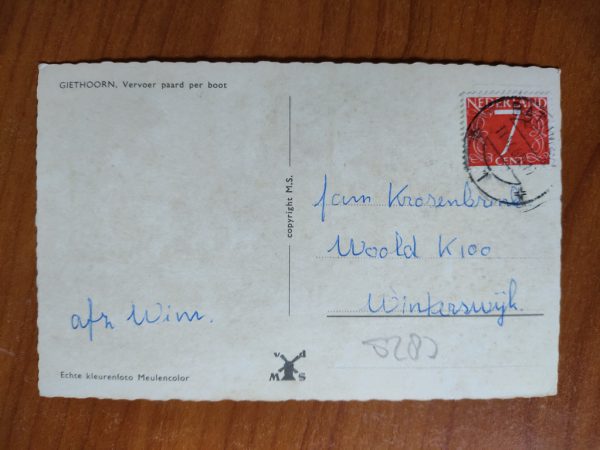 GIETHOORN, Vervoer paard per boot
NEDERLAND
7
CENT
copyright M.S.
fam Krosenbrink
Woold K100
Winterswijk.
afz Wim.
v d
M S
Echte kleurenfoto Meulencolor